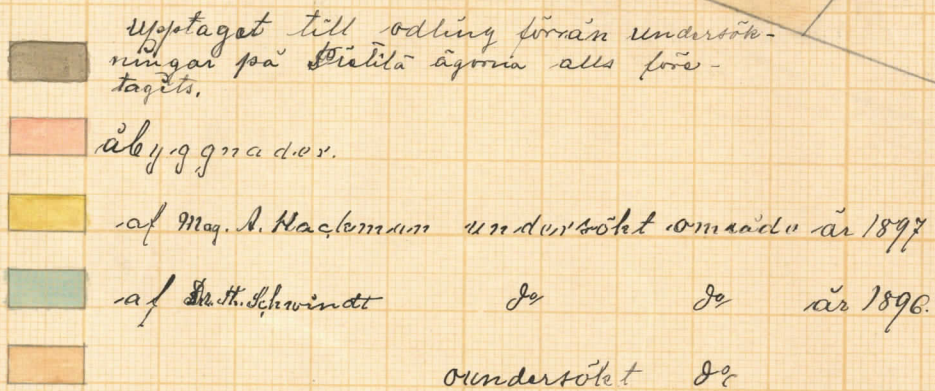 upptaget till odling förrän undersök-
ningar på Pietilä ägorna alls före-
tagits.
åbyggnader.
af Mag. A. Hackman undersökt område år 1897
af Dr. Th. Schvindt do do år 1896.
oundersökt do